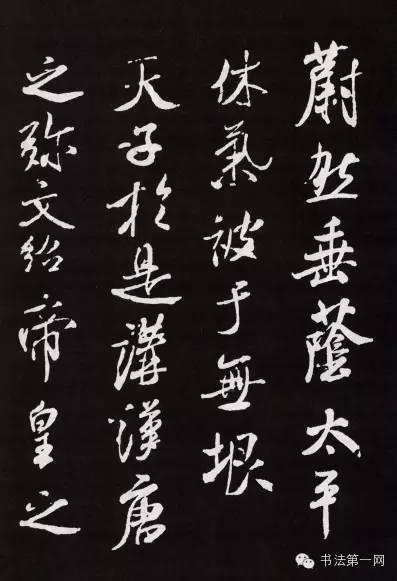 蔚然垂蔭太平
休氣被于無垠
天子於是講漢唐
之弥文紹帝皇之
书法第一网